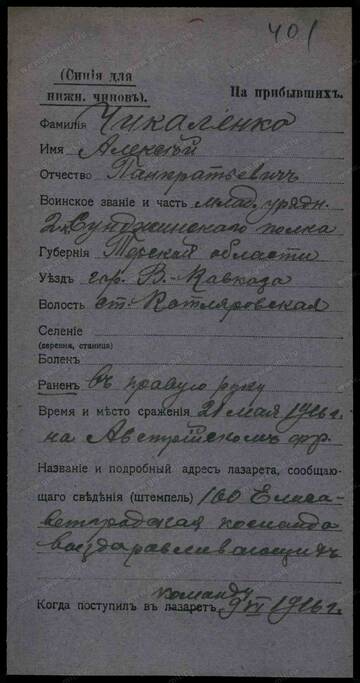 401
(Синія для
нижн. чиновъ).
На прибывшихъ.
Фамилія Чикаленко
Имя Алексѣй
Отчество Панкратьевичъ
Воинское званіе и часть млад. урядн.
2 к. Сунджинскаго полка
Губернія Терской области
Уѣздъ гор. В.-Кавказа
Волость ст. Котляровская
Селеніе
(деревня, станица)
Боленъ
Раненъ въ правую руку
Время и мѣсто сраженія 21 мая 1916 г.
на Австрійскомъ фр.
Названіе и подробный адресъ лазарета, сообщаю-
щаго свѣдѣнія (штемпель) 160 Елиса-
ветградская команда
выздаравливающихъ
команду
Когда поступилъ въ лазаретъ 9 VI 1916 г.